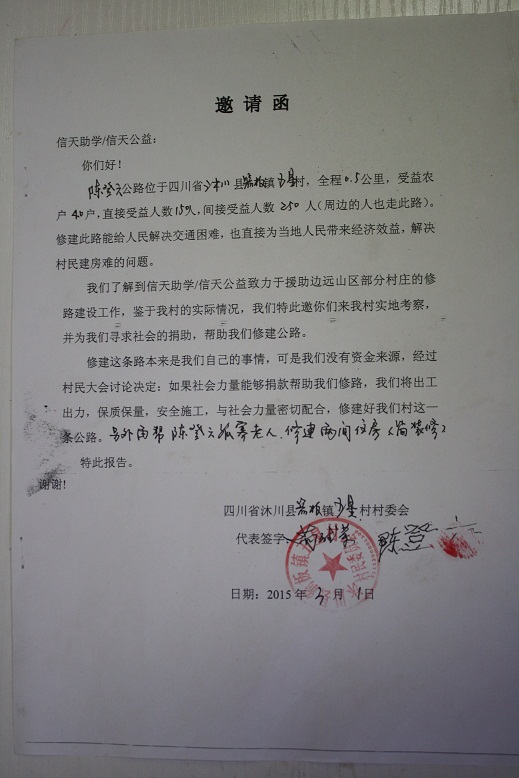 邀 请 函
信天助学/信天公益：
你们好！
陈登云公路位于四川省沐川县箭板镇村，全程0.5公里，受益农
户40户，直接受益人数150人，间接受益人数250人（周边的人也走此路）。
修建此路能给人民解决交通困难，也直接为当地人民带来经济效益，解决
村民建房难的问题。
我们了解到信天助学/信天公益致力于援助边远山区部分村庄的修
路建设工作，鉴于我村的实际情况，我们特此邀你们来我村实地考察，
并为我们寻求社会的捐助，帮助我们修建公路。
修建这条路本来是我们自己的事情，可是我们没有资金来源，经过
村民大会讨论决定：如果社会力量能够捐款帮助我们修路，我们将出工
出力，保质保量，安全施工，与社会力量密切配合，修建好我们村这一
条公路。另外因帮陈登云孤寡老人、修建两间住房（简装修）
特此报告。
谢谢！
四川省沐川县箭板镇村村委会
代表签字 陈登云
日期：2015年3月1日